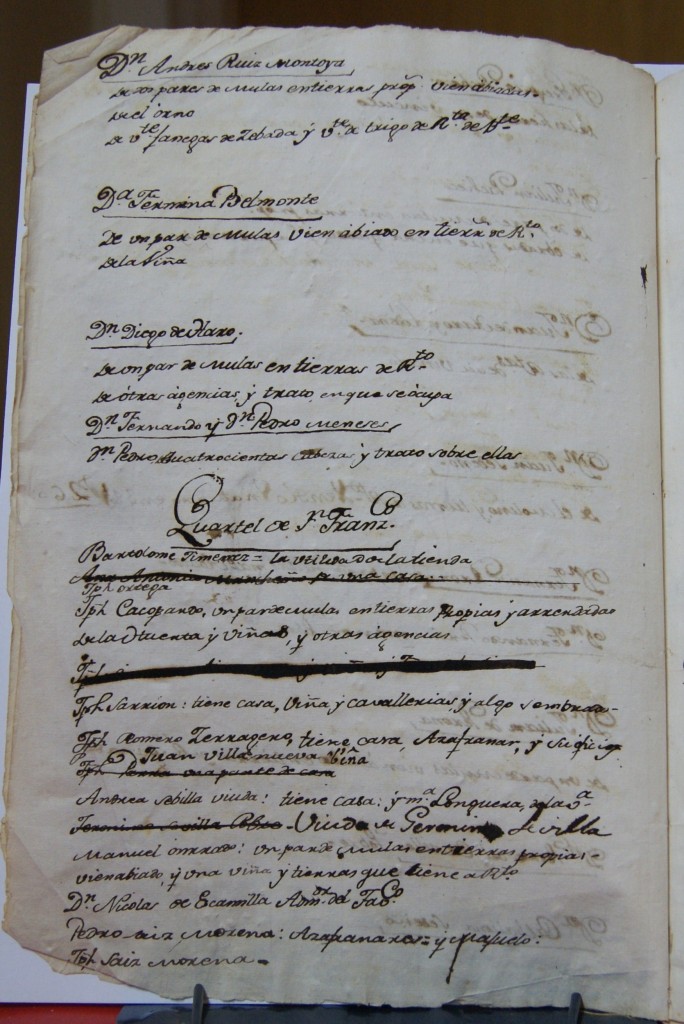 Dn Andres Ruiz Montoya
De dos pares de Mulas en tierras props vien abiadas
del orno
De vte fanegas de Zebada y vte de trigo de Rta de
Da Fermina Belmonte
De un par de Mulas vien abiado en tierras de Rto
de la Viña
Dn Diego de Haro,
De un par de Mulas en tierras de Rto
de otras agencias, y trato, en que se ócupa
Dn Fernando y Dn Pedro Meneses,
Dn Pedro quatrocientas cabezas y trato sobre ellas
Quartel de Sn Franzco
Bartolome Ximenez = la utilidad de la tienda
Ana Antonia una casa
Tph ortega
Tph Cacopardo, un par de Mulas en tierras propias y arrendadas
de la y viñas, y otras agencias
Tph
Tph Sarrion: tiene casa, viña y cavallerias, y algo sembrado
Tph Romero Terragero, tiene casa, Azafranar, y su oficio
Juan Villanueva Viña
Tph una parte de casa
Andrea Sebilla viuda: tiene casa: y ma
Jeronimo Sevilla Viuda de Geronimo Sevilla
Manuel onrrado: un par de Mulas en tierras propias
vien abiado, y una viña y tierras que tiene a Rto
Dn Nicolas de Escamilla Admor del Tabco
Pedro Saiz Morena: Azafranares = y Majuelo:
Tph Saiz Morena =